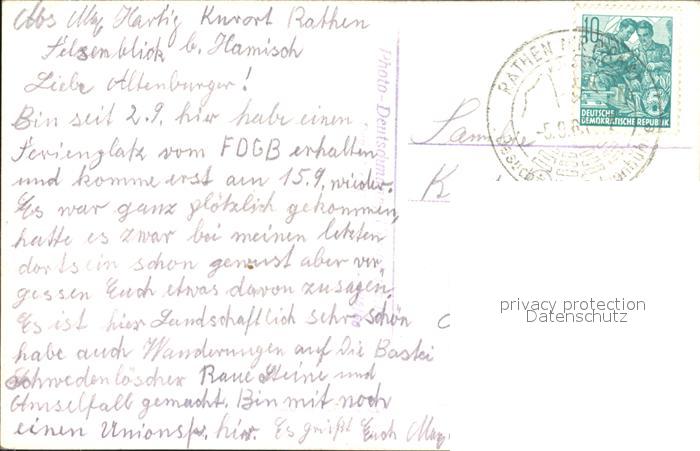 Abs Max Hartig Kurort Rathen
Felsenblick b. Hamisch
Liebe Altenburger!
Bin seit 2.9. hier habe einen
Ferienplatz vom FDGB erhalten
und komme erst am 15.9. wieder.
Es war ganz plötzlich gekommen,
hatte es zwar bei meinen letzten
dortsein schon gewust aber ver,
gessen Euch etwas davon zusagen.
Es ist hier Landschaftlich sehr schön
habe auch Wanderungen auf die Bastei
Schwedenlöscher Raue Steine und
Amselfall gemacht. Bin mit noch
einen Unionsfr. hier. Es grüßt Euch Max
Photo-Deutschmann
10
DEUTSCHE
DEMOKRATISCHE REPUBLIK
RATHEN
Besucht
privacy protection
Datenschutz